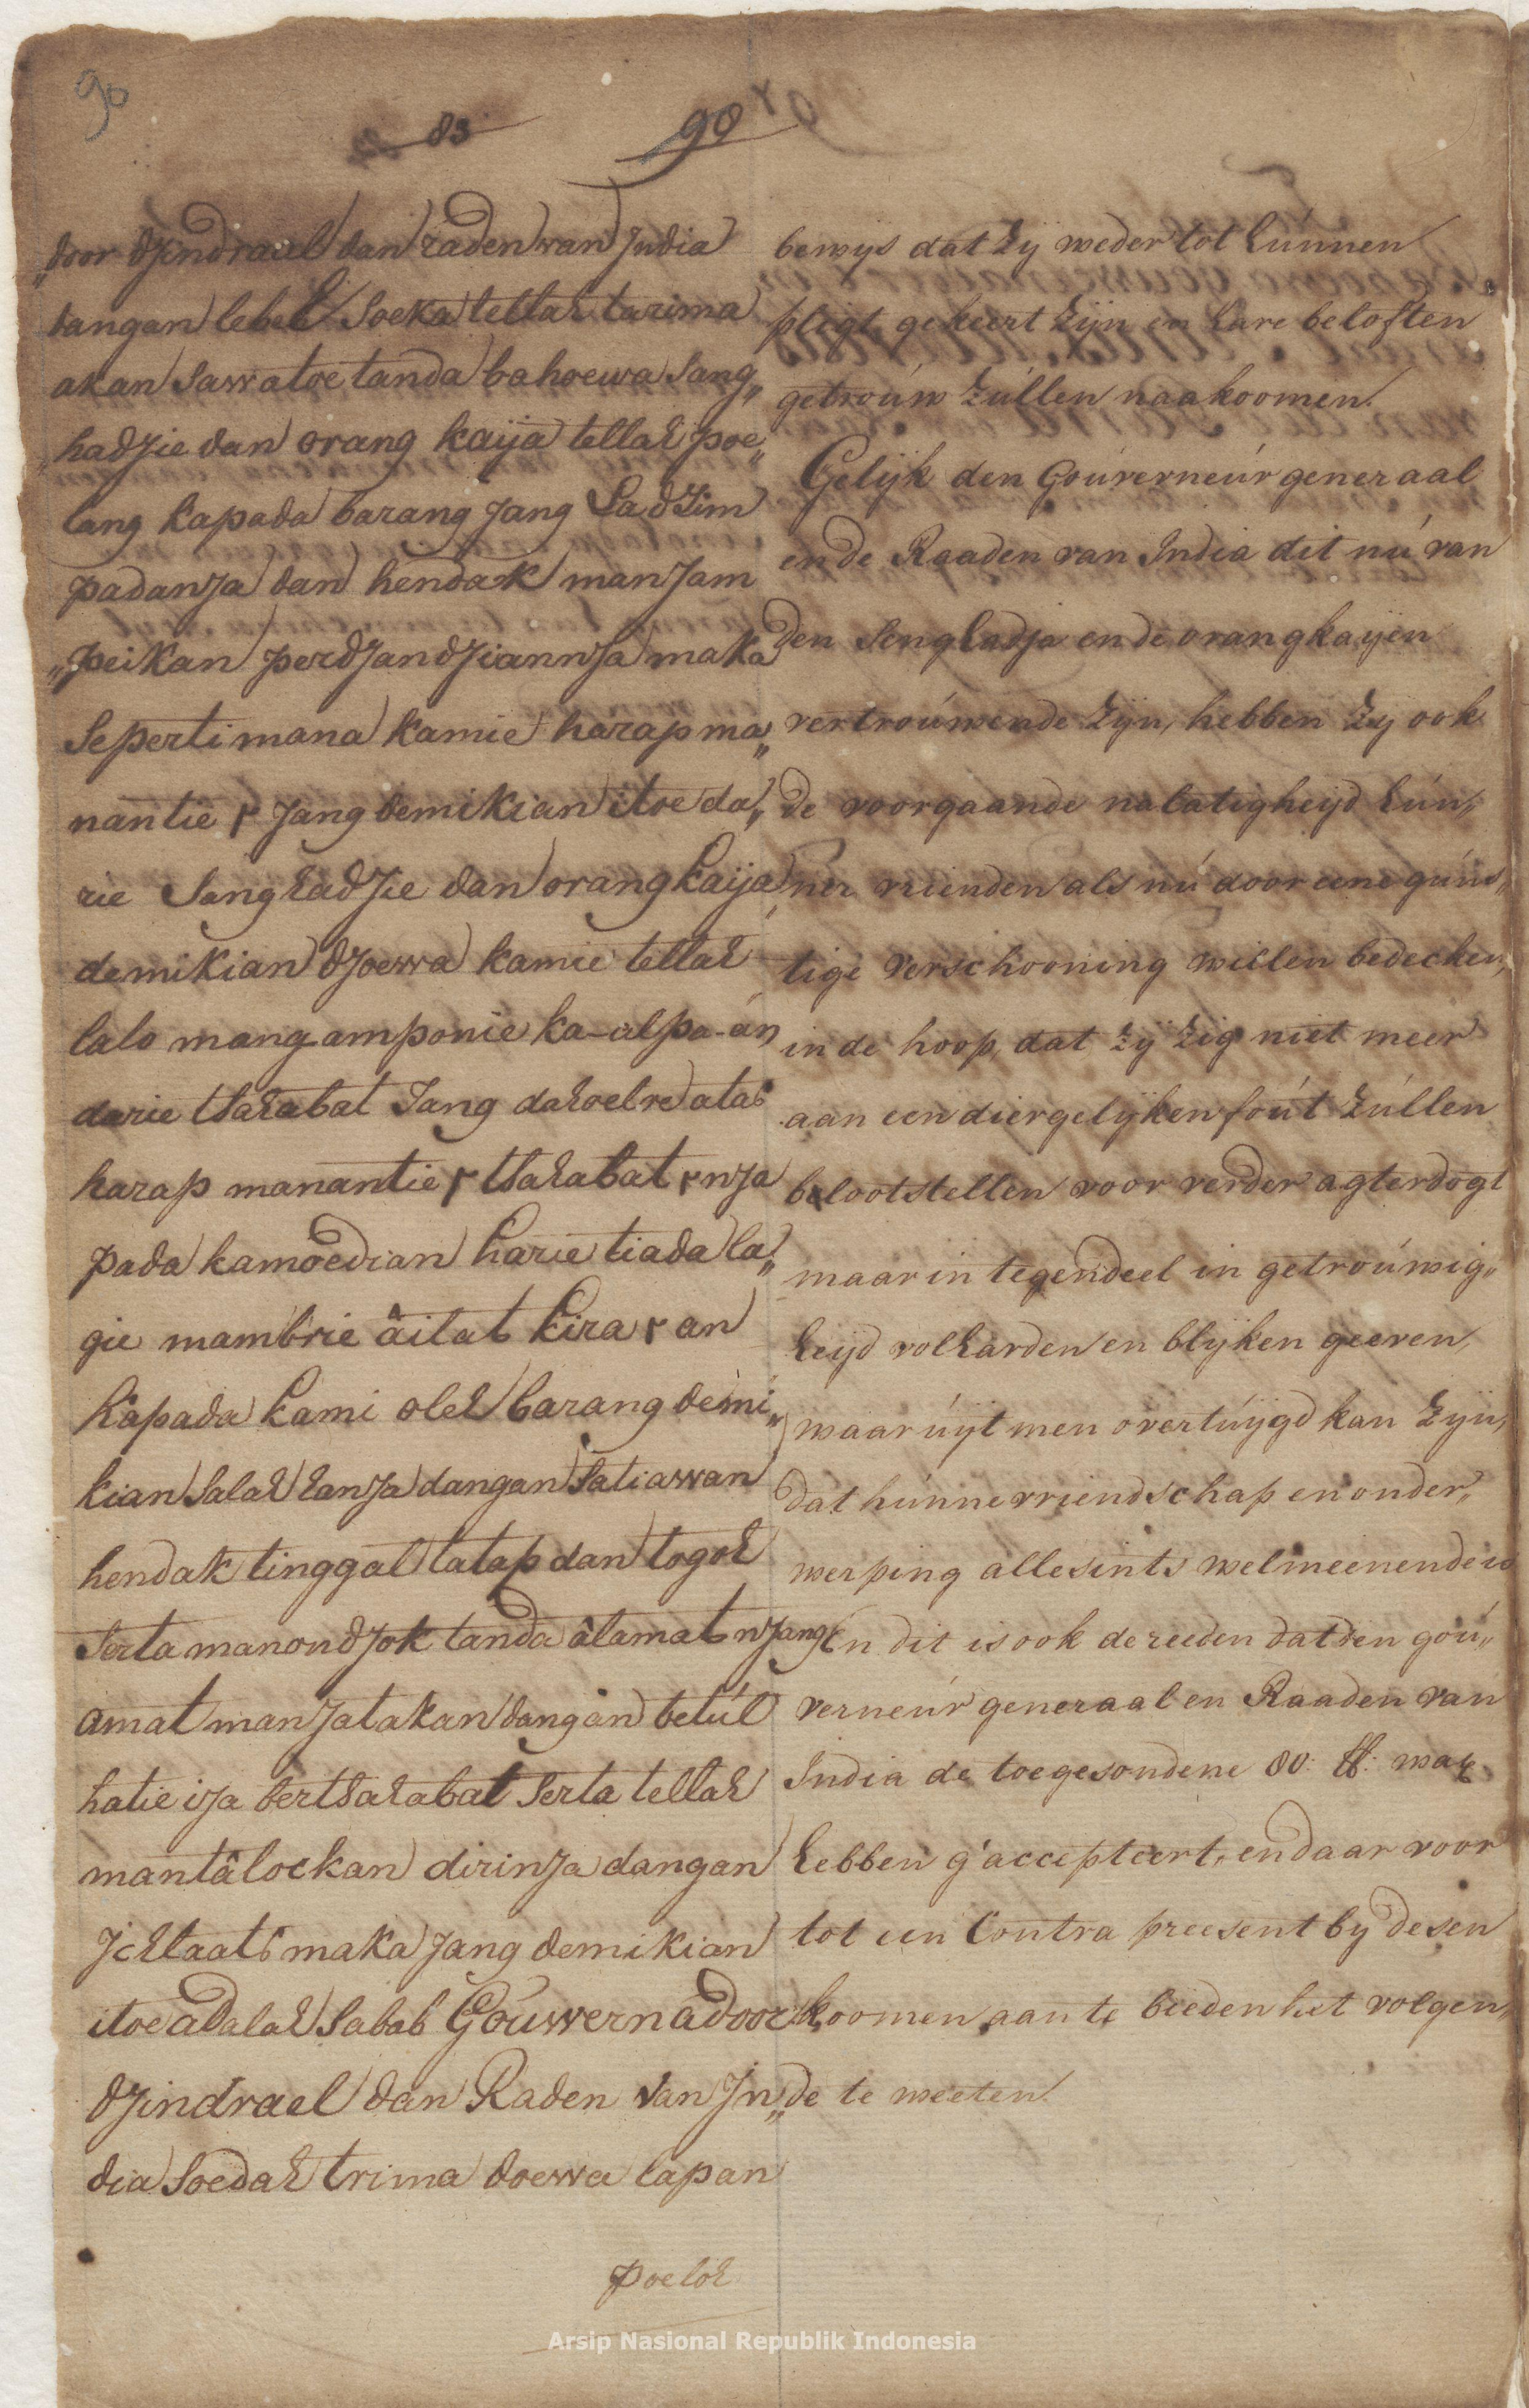 90
83
90
„door djindrael dan raden van India
dangan lebeh soeka tellah tarima
akan sawatoe tanda bahoewa sang„
„hadjie dan orang kaija tellah poe„
lang kapada barang jang ladzim
padanja dan hendak manjam
„peikan perdjandjiannja maka
seperti mana kamie harap ma„
nantie r jang demikian itoe da„
rie Sanghadjie dan orang kaija
demikian djoewa kamie tellah
lalo mangamponie ka-alpa-án
darie tsahabat jang dahoelre atas
harap manantie r tsahabat r nja
pada kamoedian harie tiada la„
gie mambrie âilat kira r an
kapada kami oleh barang demi„
kian salah hanja dangan satiawan
hendak tinggal tatap dan togoh
serta manondjok tanda âlamat njang
amat manjatakan dangan betúl
hatie ija bertsahabat serta tellah
mantâloekan dirinja dangan
Ichtaats maka jang demikian
itoe adalah sabab Goúwernadoor
djindrael dan Raden van In„
dia soedah trima doewa lapan
poeloh
bewijs dat zij weder tot húnnen
pligt gekeert zijn en hare beloften
getroúw zúllen naakoomen.
Gelijk den Goúverneúr generaal
en de Raaden van India dit nú van
den Senghadja en de orangkayen
vertroúwende zijn, hebben zij ook
de voorgaande nalatigheijd hún„
ner vrienden als nú door eene gúns„
tige verschooning willen bedecken,
in de hoop, dat zij zig niet meer
aan een diergelijken foút zúllen
blootstellen voor verder agterdogt
maar in tegendeel in getroúwig„
heijd volharden en blijken geeven,
waar úijt men overtúijgd kan zijn,
dat húnne vriendschap en onder„
werping allesints welmeenende is
En dit is ook de reeden dat den goú„
verneúr generaal en Raaden van
India de toegesondene 80: lb: wax
hebben g'accepteert, en daar voor
tot een Contra present bij desen
koomen aan te bieden het volgen„
de te weeten.
Arsip Nasional Republik Indonesia